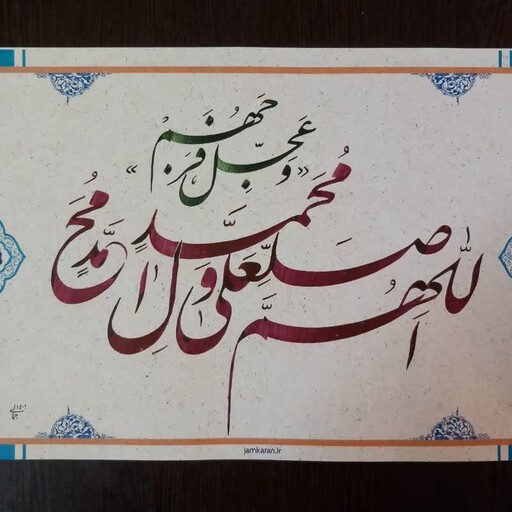 اللهم صل علی محمد وآل محمد
«وعجل فرجهم»
jamkaran.ir